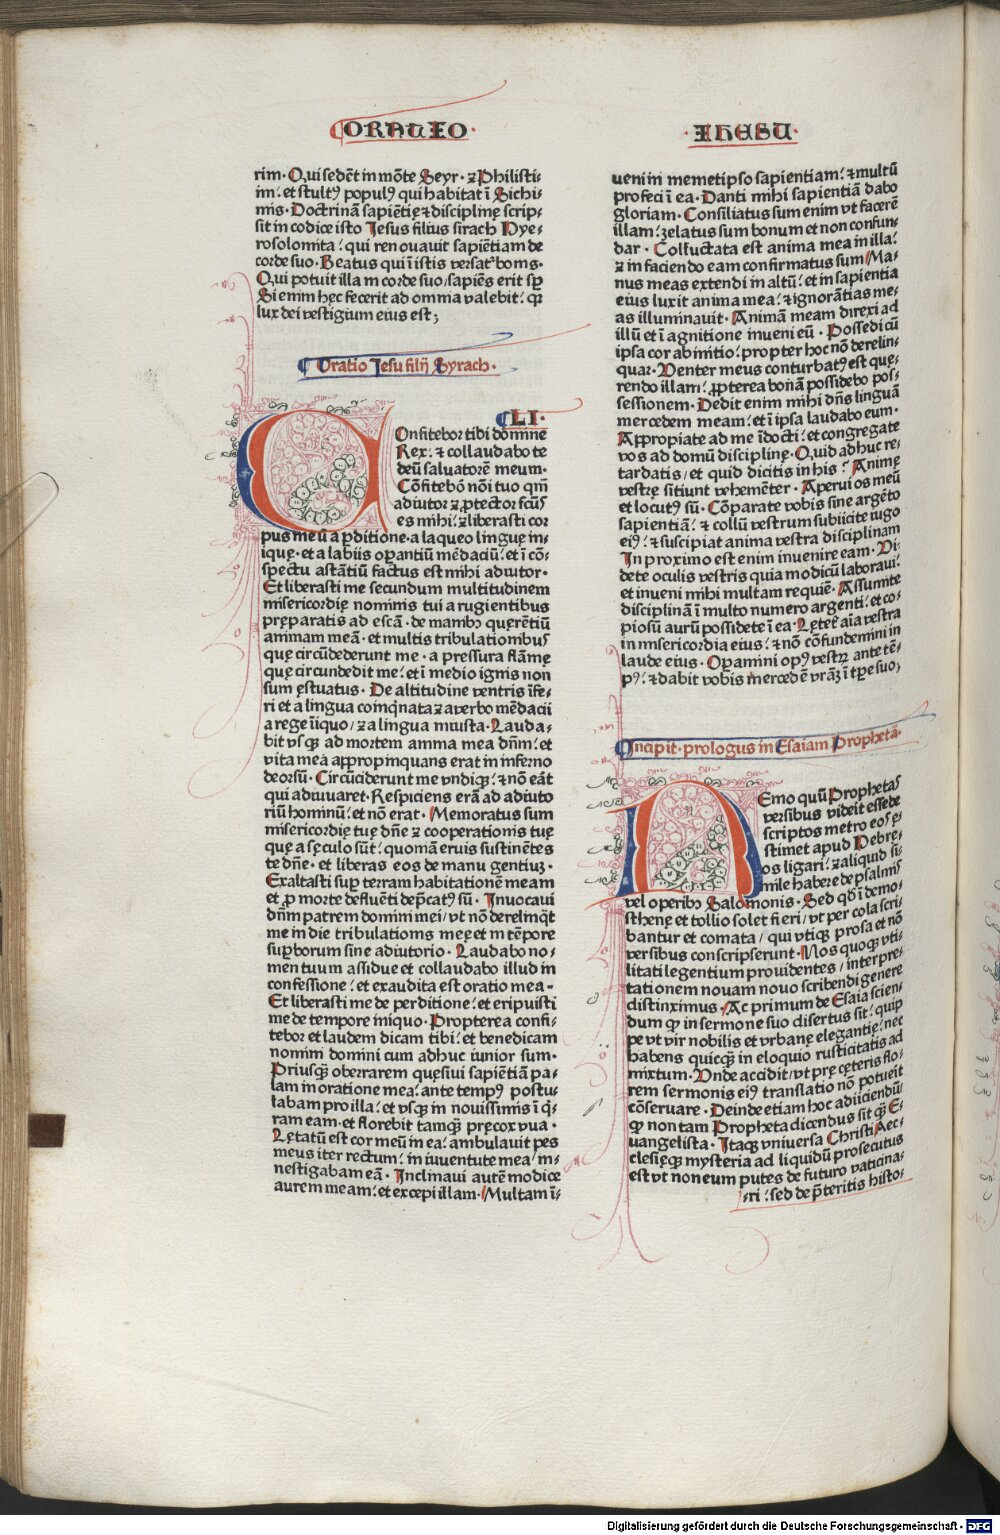 ORATIO·
·IHESU·
rim· Qui sedēt in mōte Seyr· ꝫ Philisti-
im: et stultꝰ populꝰ qui habitat ī Sichi-
mis· Doctrinā sapiētię ꝫ disciplinę scrip-
sit in codice isto Jesus filius sirach Hye-
rosolomita: qui renouauit sapiētiam de
corde suo· Beatus qui ī istis versatᷣ bonis·
Qui potuit illa in corde suo/ sapiēs erit sp̄
Si enim hęc fecerit ad omnia valebit: qꝛ
lux dei vestigium eius est;
Oratio Jesu filij Syrach·
LI·
Confitebor tibi domine
Rex: ꝫ collaudabo te
deū saluatorē meum·
Cōfitebor̄ nōi tuo qm̄
adiutor ꝫ ꝓtector fctūs
es mihi: ꝫ liberasti cor
pus meū a ꝑditione· a laqueo linguę in-
iquę· et a labiis oꝑantiū mēdaciū: et ī cō-
spectu astātiū factus est mihi adiutor·
Et liberasti me secundum multitudinem
misericordię nominis tui a rugientibus
pręparatis ad escā· de manibꝰ quęrētiū
animam meā· et multis tribulationibus
quę circūdederunt me· a pressura flāmę
quę circundedit me: et ī medio ignis non
sum ęstuatus· De altitudine ventris īfe-
ri et a lingua coinq̄nata ꝫ a verbo mēdacii
a rege īiquo/ ꝫ a lingua iniusta· Lauda-
bit vsqꝫ ad mortem anima mea dn̄m: et
vita mea appropinquans erat in inferno
deorsū· Circūciderunt me vndiqꝫ: ꝫ nō eāt
qui adiuuaret· Respiciens erā ad adiuto
riū hominū: et nō erat· Memoratus sum
misericordię tuę dn̄e ꝫ cooperationis tuę
quę a sęculo sūt: quoniā eruis sustinētes
te dn̄e· et liberas eos de manu gentium·
Exaltasti suꝑ terram habitationē meam
et ꝓ morte defluēti dep̄catꝰ sū· Inuocaui
dn̄m patrem domini mei/ vt nō derelinq̄t
me in die tribulationis meę et in tēpore
suꝑborum sine adiutorio· Laudabo no-
men tuum assidue et collaudabo illud in
confessione: et exaudita est oratio mea·
Et liberasti me de perditione: et eripuisti
me de tempore iniquo· Propterea confi-
tebor et laudem dicam tibi: et benedicam
nomini domini cum adhuc iunior sum·
Priusqꝫ oberrarem quęsiui sapiētiā pa-
lam in oratione mea: ante tempꝰ postu-
labam pro illa: et vsqꝫ in nouissimis ī q̄-
ram eam· et florebit tamqꝫ pręcox vua·
Lętatū est cor meū in ea: ambulauit pes
meus iter rectum: in iuuentute mea in-
uestigabam eā· Inclinaui autē modice
aurem meam: et excepi illam· Multam ī-
ueni in memetipso sapientiam: ꝫ multū
profeci ī ea· Danti mihi sapientiā dabo
gloriam· Consiliatus sum enim vt facerē
illam: zelatus sum bonum et non confun-
dar· Colluctata est anima mea in illa:
ꝫ in faciendo eam confirmatus sum/ Ma-
nus meas extendi in altū: et in sapientia
eius luxit anima mea: ꝫ ignorātias me-
as illuminauit· Animā meam direxi ad
illū et ī agnitione inueni eū· Possedi cū
ipsa cor ab initio: propter hoc nō derelin-
quar· Venter meus conturbatꝰ est quę-
rendo illam: ꝓpterea bonā possidebo pos-
sessionem· Dedit enim mihi dn̄s linguā
mercedem meam: et ī ipsa laudabo eum·
Appropiate ad me īdocti: et congregate
vos ad domū disciplinę· Quid adhuc re-
tardatis/ et quid dicitis in his? Animę
vestrę sitiunt vehemēter· Aperui os meū
et locutꝰ sū· Cōparate vobis sine argēto
sapientiā: ꝫ collū vestrum subiicite iugo
eiꝰ: ꝫ suscipiat anima vestra disciplinam
In proximo est enim inuenire eam· Vi-
dete oculis vestris quia modicū laboraui:
et inueni mihi multam requiē· Assumite
disciplinā ī multo numero argenti: et co-
piosū aurū possidete ī ea· Lęteť aīa vestra
in misericordia eius: ꝫ nō cōfundemini in
laude eius· Oꝑamini opꝰ vestꝝ ante tē-
pꝰ: ꝫ dabit vobis mercedē vrāꝫ ī tꝑe suo;
Incipit prologus in Esaiam Prophetā·
Nemo quū Prophetas
versibus viderit essede
scriptos metro eos ę-
stimet apud Hebrę-
os ligari: ꝫ aliquid si-
mile habere de psalmis
vel operibꝰ Salomonis· Sed qd̄ ī demo-
sthene et tollio solet fieri/ vt per cola scri-
bantur et comata/ qui vtiqꝫ prosa et nō
versibus conscripserunt· Nos quoqꝫ vti-
litati legentium prouidentes/ interpre-
tationem nouam nouo scribendi genere
distinximus· Ac primum de Esaia scien-
dum ꝙ in sermone suo disertus sit: quip
pe vt vir nobilis et vrbanę elegantię: nec
habens quicqꝫ in eloquio rusticitatis ad
mixtum· Vnde accidit/ vt pręcęteris flo-
rem sermonis eiꝰ translatio nō potueit
cōseruare· Deinde etiam hoc adiiciendū/
ꝙ non tam Propheta dicendus sit qꝫ E-
uangelista· Itaqꝫ vniuersa Christi Aec-
clesięqꝫ mysteria ad liquidū prosecutus
est vt non eum putes de futuro vaticina-
ri: sed de p̄teritis histo-
Digitalisierung gefördert durch die Deutsche Forschungsgemeinschaft - DFG